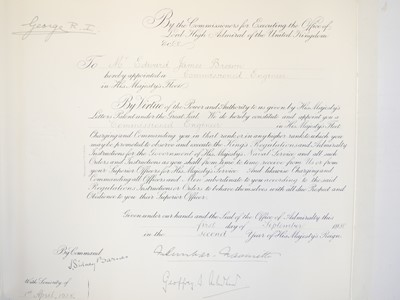 George R. I.
By the Commissioners for Executing the Office of
Lord High Admiral of the United Kingdom
&c. &c. &c.
To Mr Edward James Brown
hereby appointed a Commissioned Engineer
in His Majesty's Fleet
By Virtue of the Power and Authority to us given by His Majesty's
Letters Patent under the Great Seal We do hereby constitute and appoint you a
Commissioned Engineer in His Majesty's Fleet
Charging and Commanding you in that rank or in any higher rank to which you
may be promoted to observe and execute the King's Regulations and Admiralty
Instructions for the Government of His Majesty's Naval Service and all such
Orders and Instructions as you shall from time to time receive from Us or from
your Superior Officers for His Majesty's Service. And likewise Charging and
Commanding all Officers and Men subordinate to you according to the said
Regulations Instructions or Orders to behave themselves with all due Respect and
Obedience to you their Superior Officer.
Given under our hands and the Seal of the Office of Admiralty this
first day of September
in the second Year of His Majesty's Reign.
By Command
Sidney Barnes
With Seniority of
1st April,